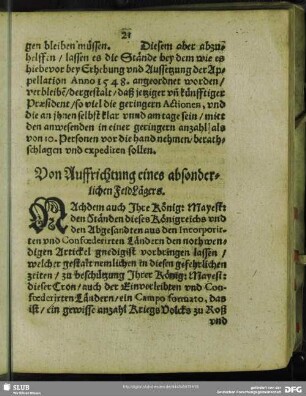 21
gen bleiben müssen. Diesem aber abzu-
helffen / lassen es die Stände bey dem wie es
hiebevor bey Erhebung vnd Aussetzung der Ap-
pellation Anno 1548. angeordnet worden /
verbleiben / dergestalt / daß jetziger vñ künfftiger
Præsident / so viel die geringern Actionen, vnd
die an jhnen selbst klar vnnd am tage sein / mit
den anwesenden in einer geringern anzahl / als
von 10. Personen vor die hand nehmen / berath-
schlagen vnd expediren sollen.
Von Auffrichtung eines absonder-
lichen FeldLägers.
NAchdem auch Ihre König: Mayest:
den Ständen dieses Königreichs vnd
den Abgesandten aus den Incorporir-
ten vnd Confœderirten Ländern den nothwen-
digen Artickel gnedigist vorbringen lassen /
welcher gestalt nemlichen in diesen gefehrlichen
zeiten / zu beschützung Ihrer König: Mayest:
dieser Cron / auch der Einverleibten vnd Con-
fœderirten Ländern / ein Campo formato, das
ist / ein gewisse anzahl Kriegs Volcks zu Roß
vnd
SLUB